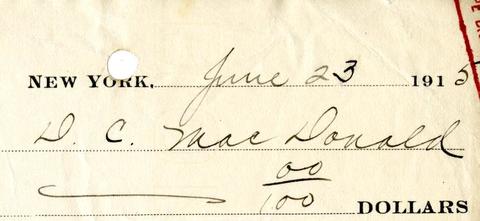 NEW YORK, June 23 1915
D. C. MacDonald
00/100 DOLLARS